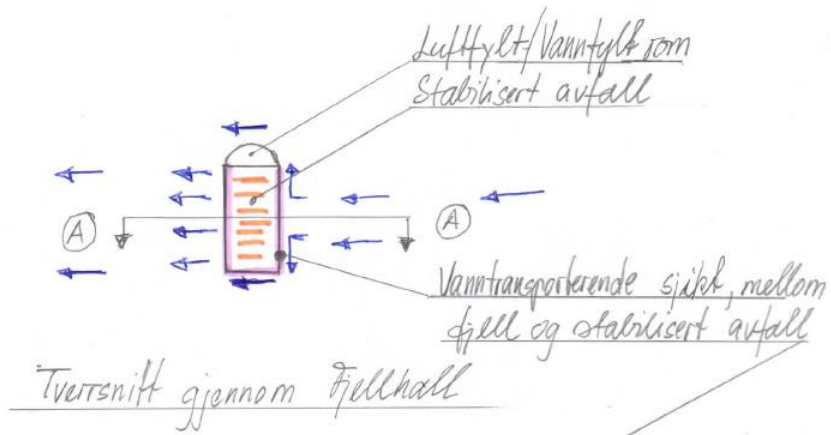 Luftfylt/Vannfylt rom
Stabilisert avfall
A
A
Vanntransporterende sjikt, mellom
fjell og stabilisert avfall
Tverrsnitt gjennom Fjellhall